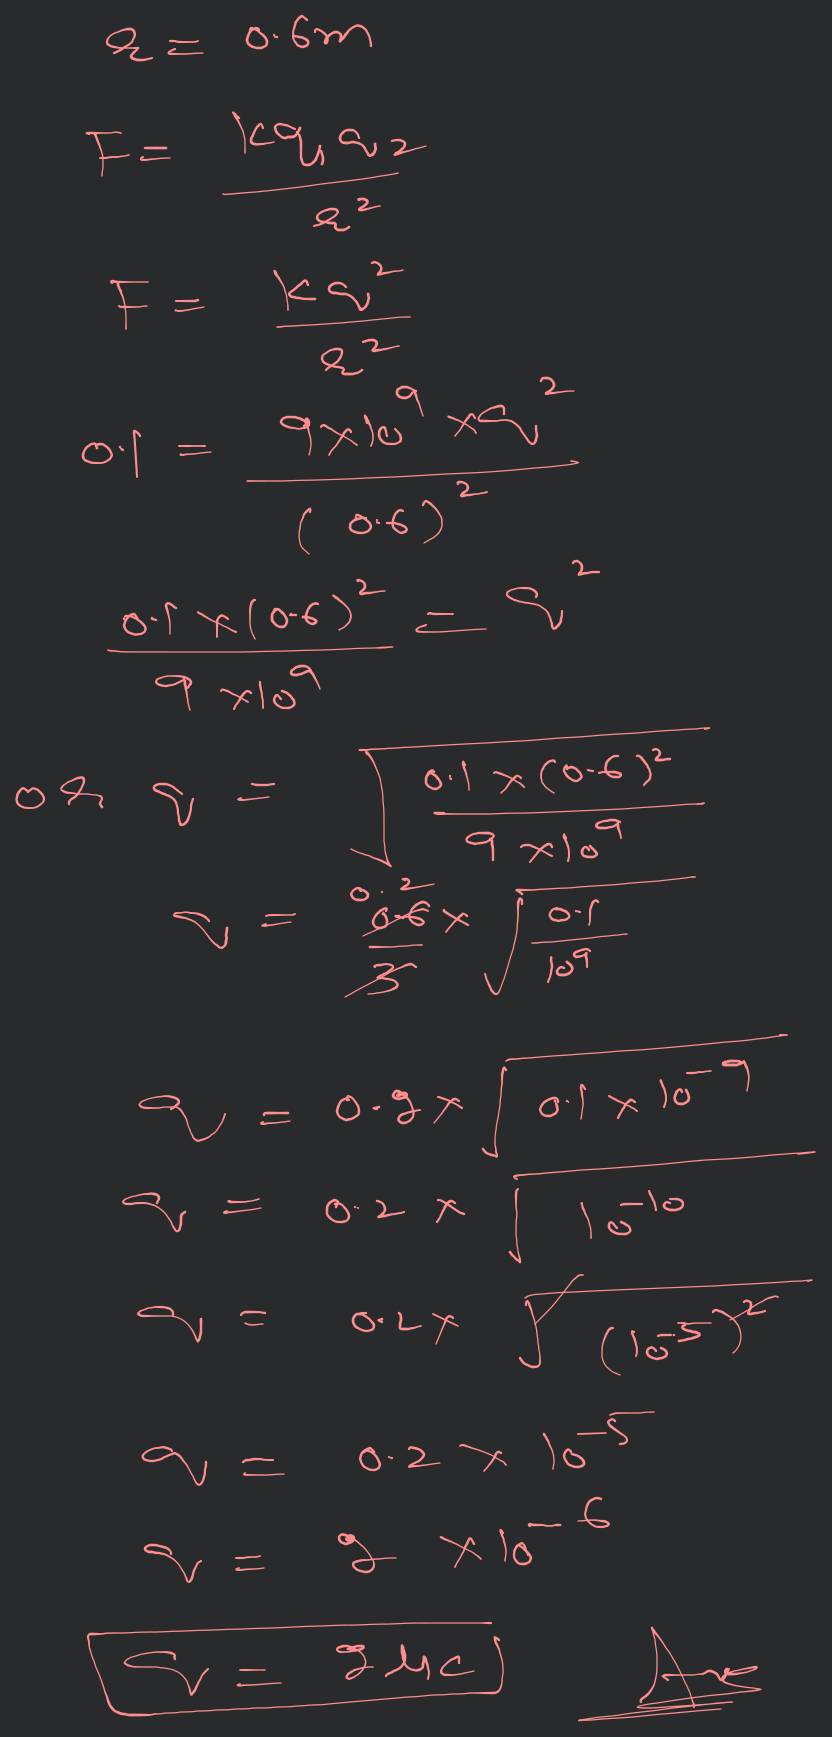 r = 0.6m
F = kq₁q₂ / r²
F = kq² / r²
0.1 = 9×10⁹ × q² / (0.6)²
0.1 × (0.6)² / 9×10⁹ = q²
or q = √(0.1 × (0.6)² / 9×10⁹)
0.2
q = 0.6 / 3 × √(0.1 / 10⁹)
q = 0.2 × √(0.1 × 10⁻⁹)
q = 0.2 × √(10⁻¹⁰)
q = 0.2 × √((10⁻⁵)²)
q = 0.2 × 10⁻⁵
q = 2 × 10⁻⁶
q = 2 μc Ans